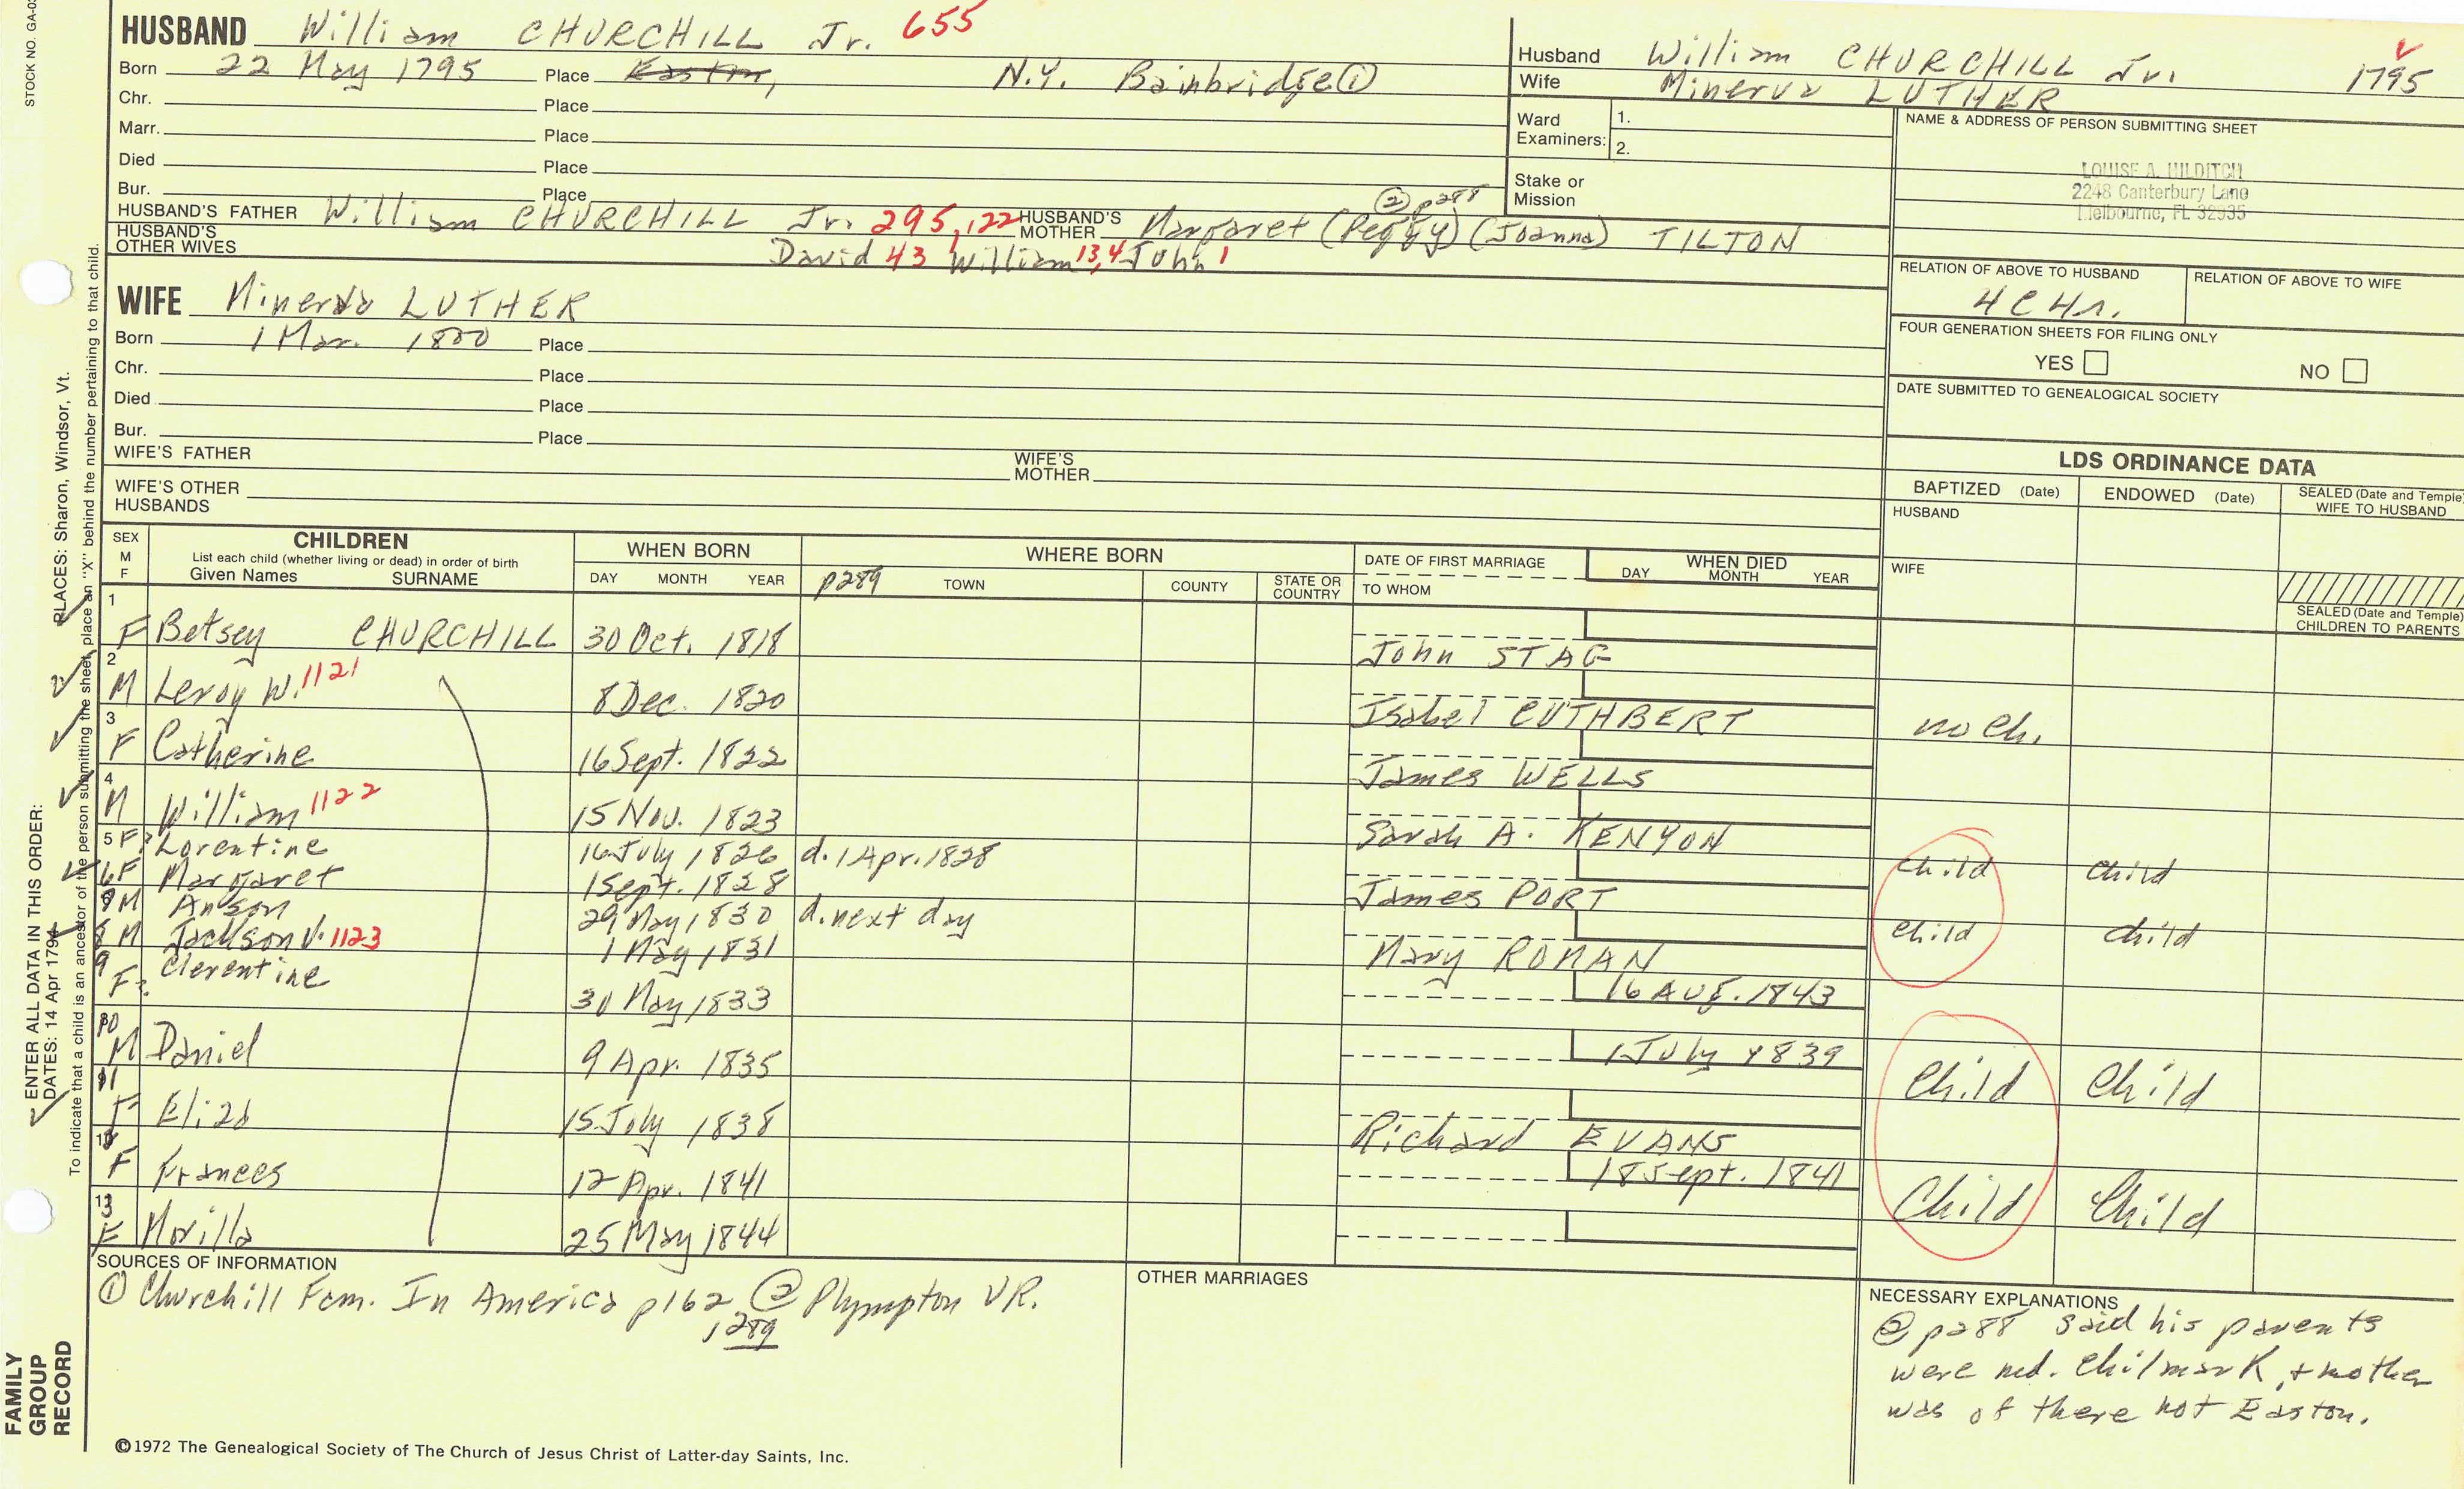 STOCK NO. GA-0
HUSBAND William CHURCHILL Jr. 655
Born 22 May 1795 Place Easton, N.Y. Bainbridge ①
Chr. Place
Marr. Place
Died Place
Bur. Place
HUSBAND'S FATHER William CHURCHILL Jr. 295,122 HUSBAND'S MOTHER Margaret (Peggy) (Joanna) TILTON ② p288
HUSBAND'S OTHER WIVES David 43 William 13,4 John 1
Husband William CHURCHILL Jr. 1795
Wife Minerva LUTHER
Ward Examiners: 1.
2.
Stake or Mission
NAME & ADDRESS OF PERSON SUBMITTING SHEET
LOUISE A. HILDITCH
2248 Canterbury Lane
Melbourne, FL 32935
RELATION OF ABOVE TO HUSBAND RELATION OF ABOVE TO WIFE
4C4r.
FOUR GENERATION SHEETS FOR FILING ONLY
YES NO
DATE SUBMITTED TO GENEALOGICAL SOCIETY
WIFE Minerva LUTHER
Born 1 Mar. 1800 Place
Chr. Place
Died Place
Bur. Place
WIFE'S FATHER WIFE'S MOTHER
WIFE'S OTHER HUSBANDS
LDS ORDINANCE DATA
BAPTIZED (Date) ENDOWED (Date) SEALED (Date and Temple) WIFE TO HUSBAND
HUSBAND
WIFE
SEALED (Date and Temple) CHILDREN TO PARENTS
SEX M F CHILDREN WHEN BORN WHERE BORN DATE OF FIRST MARRIAGE WHEN DIED
List each child (whether living or dead) in order of birth
Given Names SURNAME DAY MONTH YEAR p289 TOWN COUNTY STATE OR COUNTRY TO WHOM DAY MONTH YEAR
1 F Betsey CHURCHILL 30 Oct. 1818 John STAG
2 M Leroy W. 1121 8 Dec. 1820 Isabel CUTHBERT no ch.
3 F Catherine 16 Sept. 1822 James WELLS
4 M William 1122 15 Nov. 1823 Sarah A. KENYON
5 F? Lorentine 16 July 1826 d. 1 Apr. 1828 child child
6 F Margaret 1 Sept. 1828 James PORT
M Anson 29 May 1830 d. next day child child
8 M Jackson V. 1123 1 May 1831 Mary ROMAN
9 F? Clerentine 30 May 1833 16 Aug. 1843
10 M Daniel 9 Apr. 1835 1 July 1839 Child Child
11 F Eliza 15 July 1838 Richard EVANS
12 F Frances 12 Apr. 1841 18 Sept. 1841 Child Child
13 F Morilla 25 May 1844
SOURCES OF INFORMATION
① Churchill Fam. In America p162, 289 ② Plympton VR.
OTHER MARRIAGES
NECESSARY EXPLANATIONS
② p288 said his parents
were md. Chilmark, + mother
was of there not Easton.
ENTER ALL DATA IN THIS ORDER:
DATES: 14 Apr 1794 PLACES: Sharon, Windsor, Vt.
To indicate that a child is an ancestor of the person submitting the sheet, place an "X" behind the number pertaining to that child.
FAMILY
GROUP
RECORD
©1972 The Genealogical Society of The Church of Jesus Christ of Latter-day Saints, Inc.